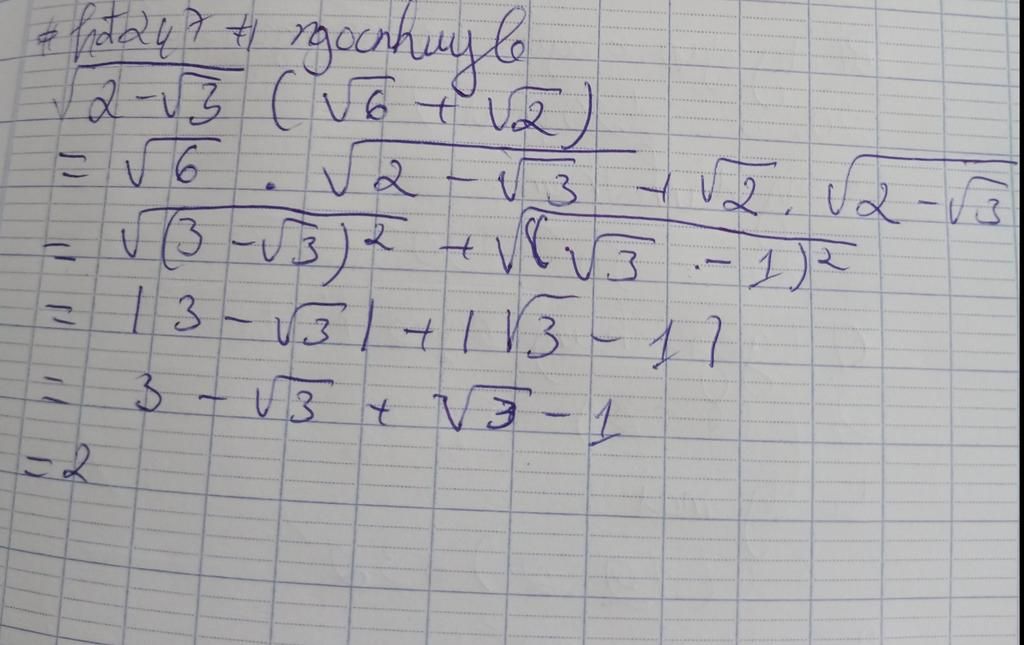 # hdt247 # ngocnhuyle
√(2-√3) (√6 + √2)
= √6 . √(2 - √3) + √2 . √(2-√3)
= √((3 -√3)²) + √((√3 - 1)²)
= |3 - √3| + |√3 - 1|
= 3 - √3 + √3 - 1
= 2